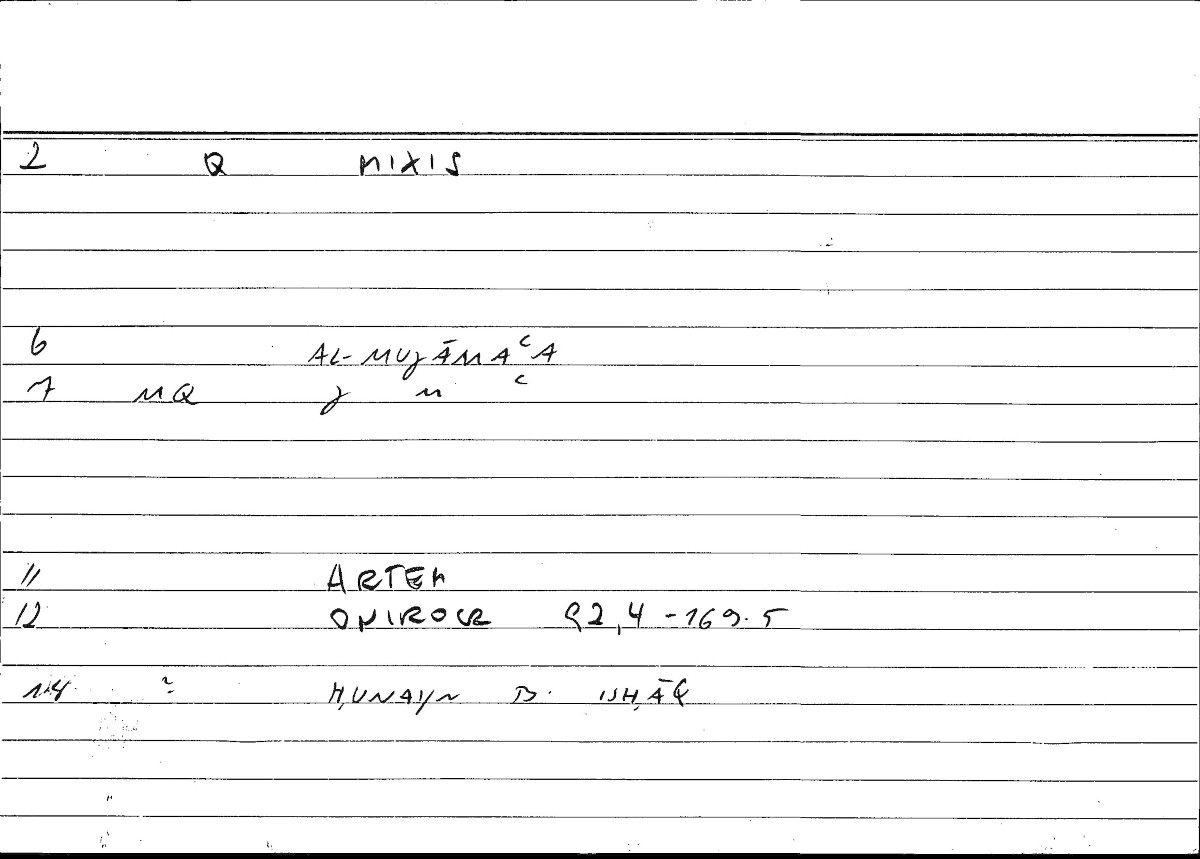 2 Q MIXIS
6 AL-MUJĀMAʿA
7 MQ J M ʿ
11 ARTEM
12 ONIROCR 92,4-169.5
14 ~ ḤUNAYN B. ISḤĀQ